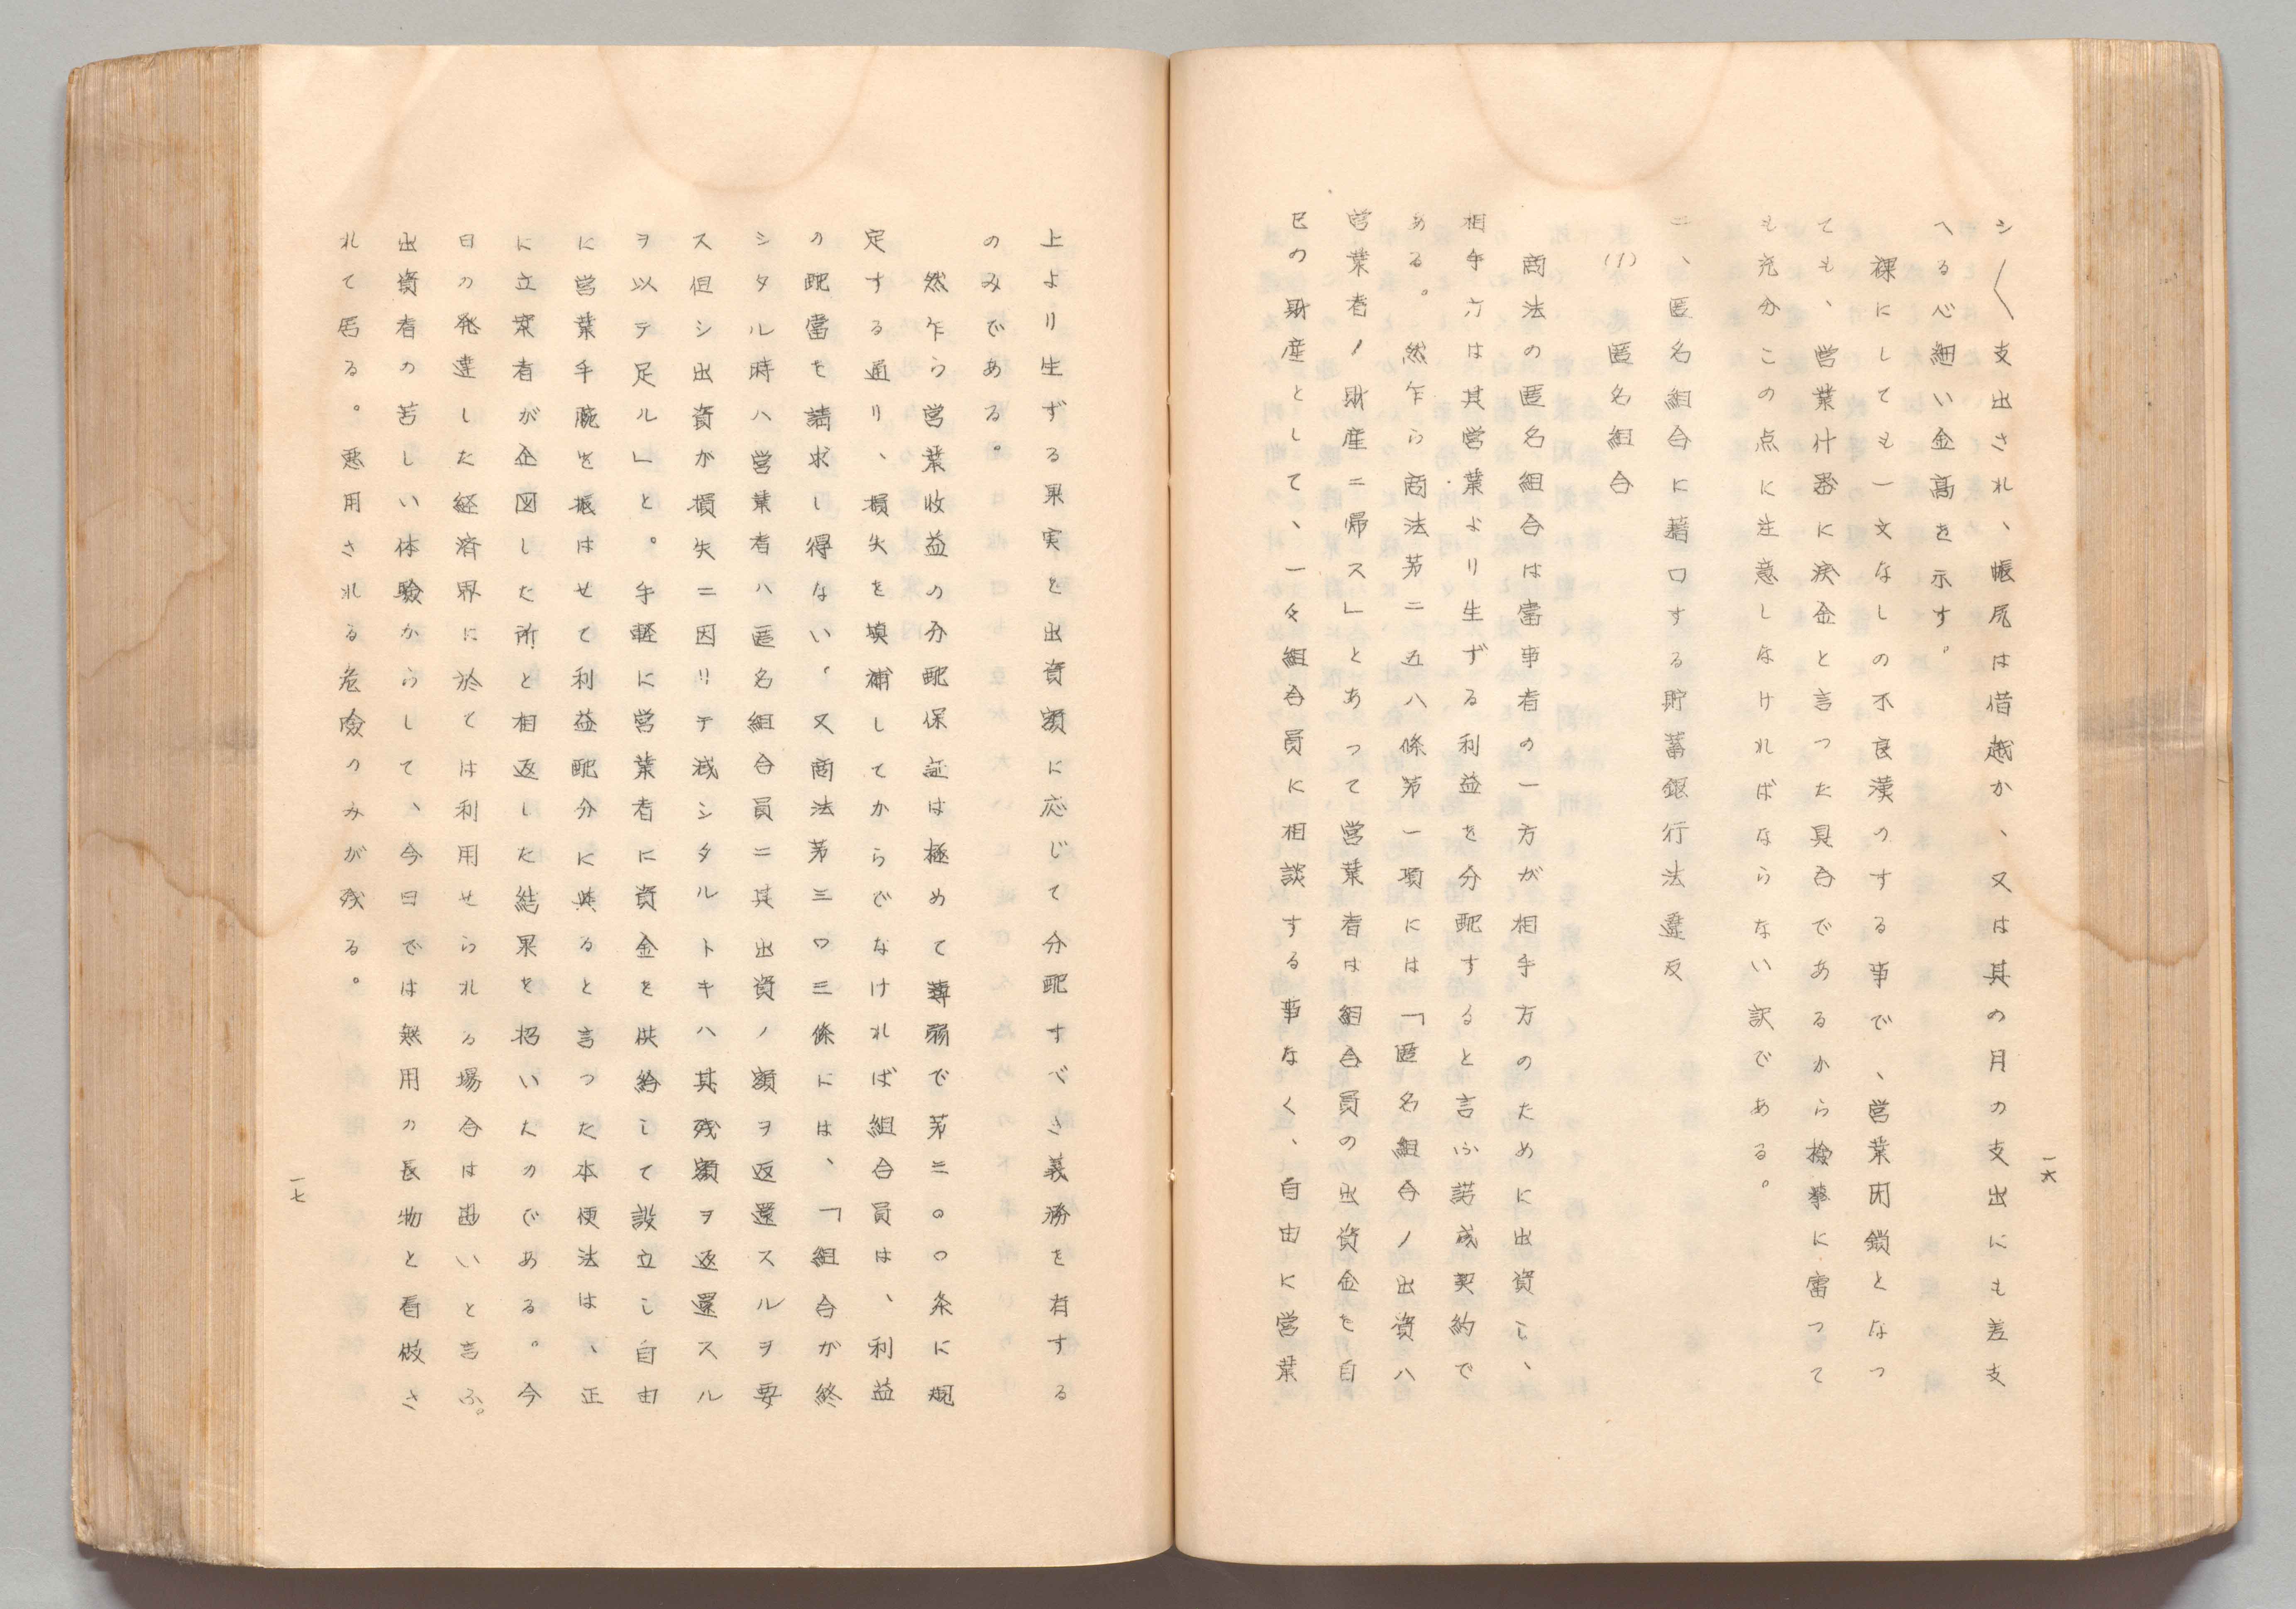 一六
シ〱支出され、帳尻は借越か、又は其の月の支出にも差支
へる心細い金高を示す。
裸にしても一文なしの不良漢のする事で、営業閉鎖となつ
ても、営業什器に涙金と言つた具合であるから検挙に當つて
も充分この点に注意しなければならない訳である。
二、匿名組合に藉口する貯蓄銀行法違反
(1) 匿名組合
商法の匿名組合は當事者の一方が相手方のために出資し、
相手方は其営業より生ずる利益を分配すると言ふ諾成契約で
ある。然乍ら商法茅二五八條茅一項には「匿名組合ノ出資ハ
営業者ノ財産ニ帰ス」とあって営業者は組合員の出資金を自
已の財産として、一々組合員に相談する事なく、自由に営業
上より生ずる果実を出資額に応じて分配すべき義務を有する
のみである。
然乍ら営業收益の分配保証は極めて薄弱で茅三〇〇条に規
定する通り、損失を填補してからでなければ組合員は、利益
の配當を請求し得ない。又商法茅三〇三條には、「組合が終
シタル時ハ営業者ハ匿名組合員ニ其出資ノ額ヲ返還スルヲ要
ス但シ出資が損失ニ因リテ減シタルトキハ其残額ヲ返還スル
ヲ以テ足ル」と。手軽に営業者に資金を供給して設立し自由
に営業手腕を振はせて利益配分に与ると言つた本便法は、正
に立案者が企図した所と相返した結果を招いたのである。今
日の発達した経済界に於ては利用せられる場合は尠いと言ふ。
出資者の苦しい体験からして、今日では無用の長物と看做さ
れて居る。悪用される危険のみが残る。
一七